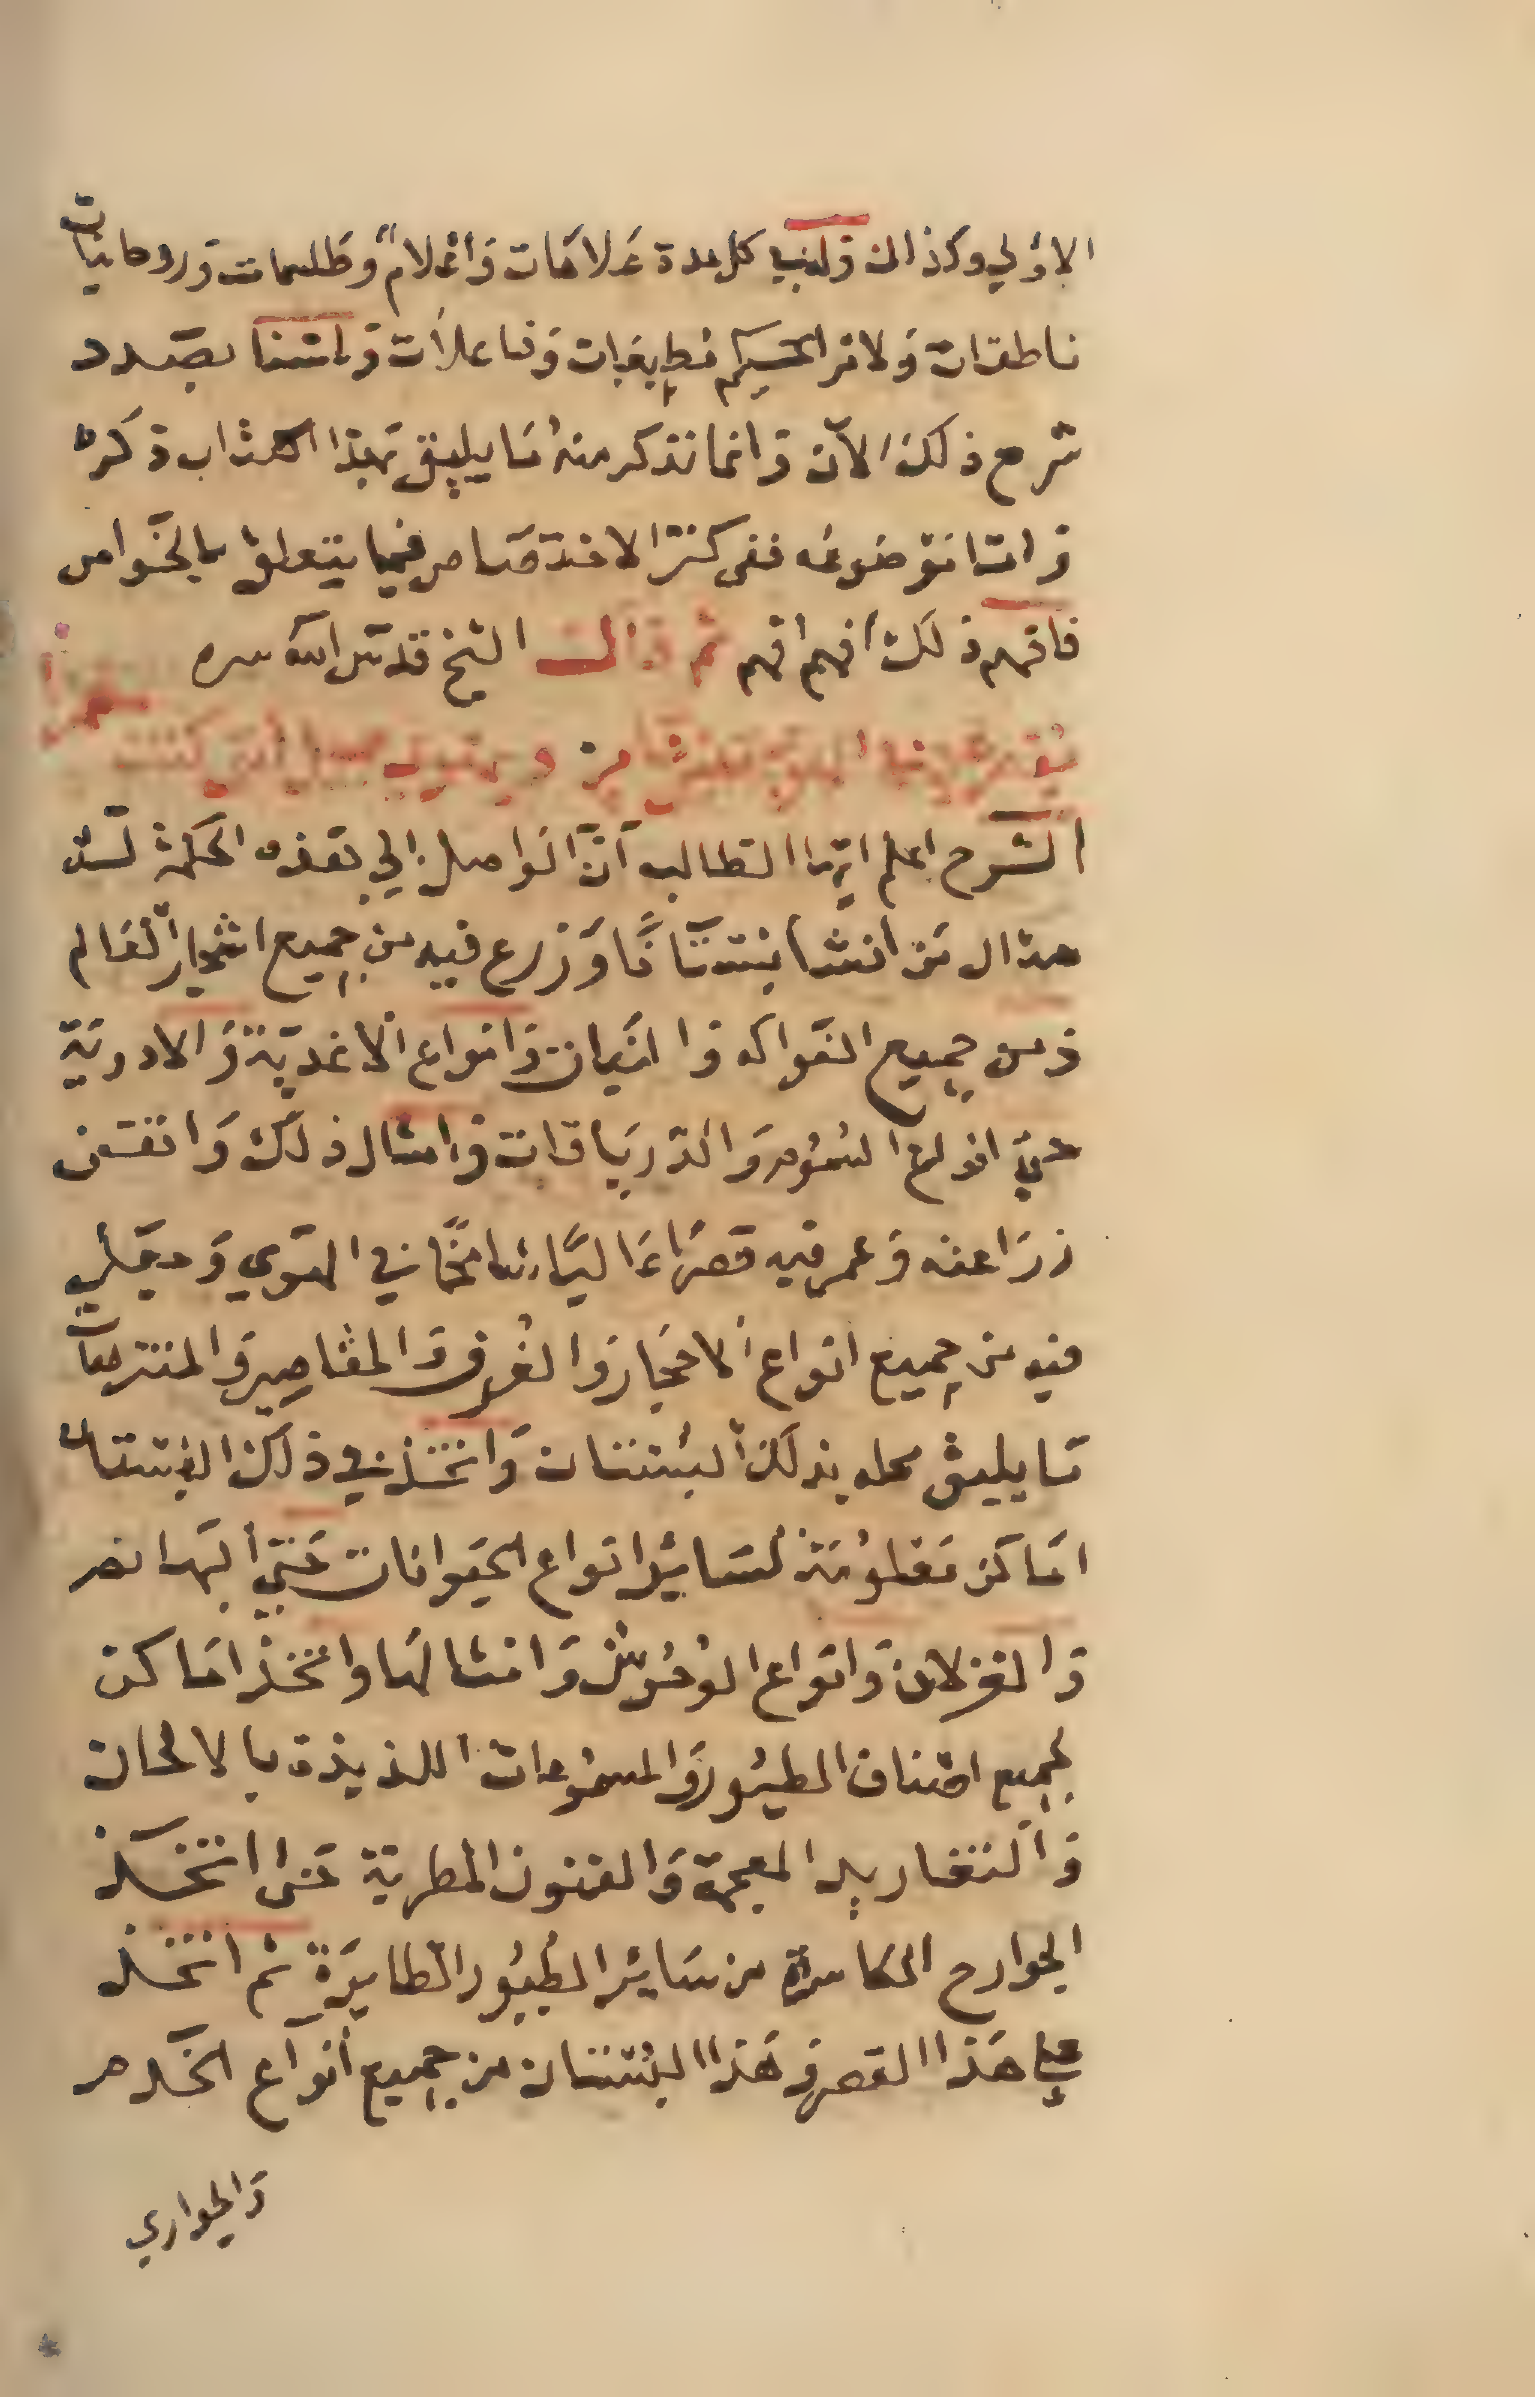 الاولي وكذالك ولنب كل مدة علامات واعلام وطلسمات وروحانيات
ناطقات ولامر الحكيم مطيعات وفاعلات ولسنا بصدد
شرح ذلك الآن وانما نذكر منه ما يليق بهذا الكتاب ذكره
واما موضوعه ففي كنز الاختصاص فيما يتعلق بالخواص
فافهم ذلك افهم افهم ثم قال الشيخ قدس الله سره
الشرح اعلم ايها الطالب ان الواصل الي هذه الحكمة
مثال من انشا بستانا وزرع فيه من جميع اشجار العالم
ومن جميع الفواكه وانواع الاغدية والادوية
حتي انواع السموم والدرياقات وامثال ذلك واتقن
زراعته وعمر فيه قصرا عاليا شامخا في الهوي وجعل
فيه من جميع انواع الاحجار والغرف والمقاصير والمنتزهات
ما يليق محله بذلك البستان واتخذ في ذلك البستان
اماكن معلومة لساير انواع الحيوانات حتي البهايم
والغزلان وانواع الوحوش وامثالها واتخذ اماكن
لجميع اصناف الطيور والمسموعات اللذيذة بالالحان
والتغاريد المعجبة والفنون المطربة حتى اتخذ
الجوارح الكاسرة من ساير الطيور الطايرة ثم اتخذ
علي هذا القصر وهذا البستان من جميع انواع الخدم
والجواري